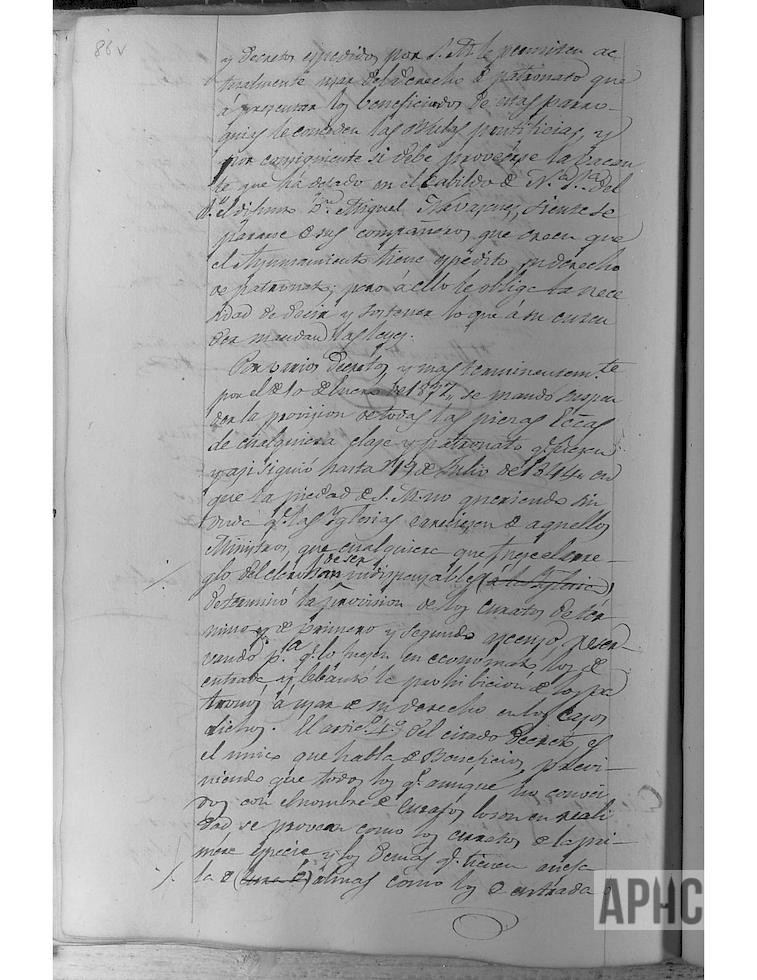 86v
y decretos espedidos por S. M. le permiten ac
tualmente usar del derecho de patronato que
á presentar los beneficiados de estas parro-
quias le conceden las Bulas pontificias, y
por consiguiente si debe proveerse la vacan
te que ha dejado en el Cabildo de N.a S.a del
P. el difunto Dn. Miguel siente se
pararse de sus compañeros que creen que
el Ayuntamiento tiene espedito su derecho
de patronato; pero á ello le obliga la nece
sidad de decir y sostener lo que á su enten
der mandan las leyes.
Por varios Decretos y mas terminantem.te
por el de 10 de Enero de 1837,, se mandó suspen
der la provision de todas las piezas Eccas
de cualquiera clase y patronato q.e fuesen
y asi siguió hasta 19 de Julio de 1844,, en
que la piedad de S. M. no queriendo sin
duda q.e las Yglesias careciesen de aquellos
Ministros, que cualquiera que fuese el arre-
glo del clero han de ser indispensables (á la Yglesia)
determinó la provision de los curatos de tér
mino y de primero y segundo ascenso, reser-
vando p.a q.e lo fuesen en economatos los de
entrada y lebantó la prohibicion de los pa
tronos á usar de su derecho en los casos
dichos. El artic.o 4º del citado Decreto es
el unico que habla de Beneficios, previ-
niendo que todos los q.e aunque no conoci
dos con el nombre de Curatos lo son en reali
dad se provean como los curatos de la pri-
mera especie y los demas q.e tienen aneja
la de (cura de) almas como los de entrada
APHC